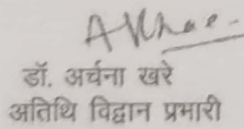 डॉ. अर्चना खरे
अतिथि विद्वान प्रभारी